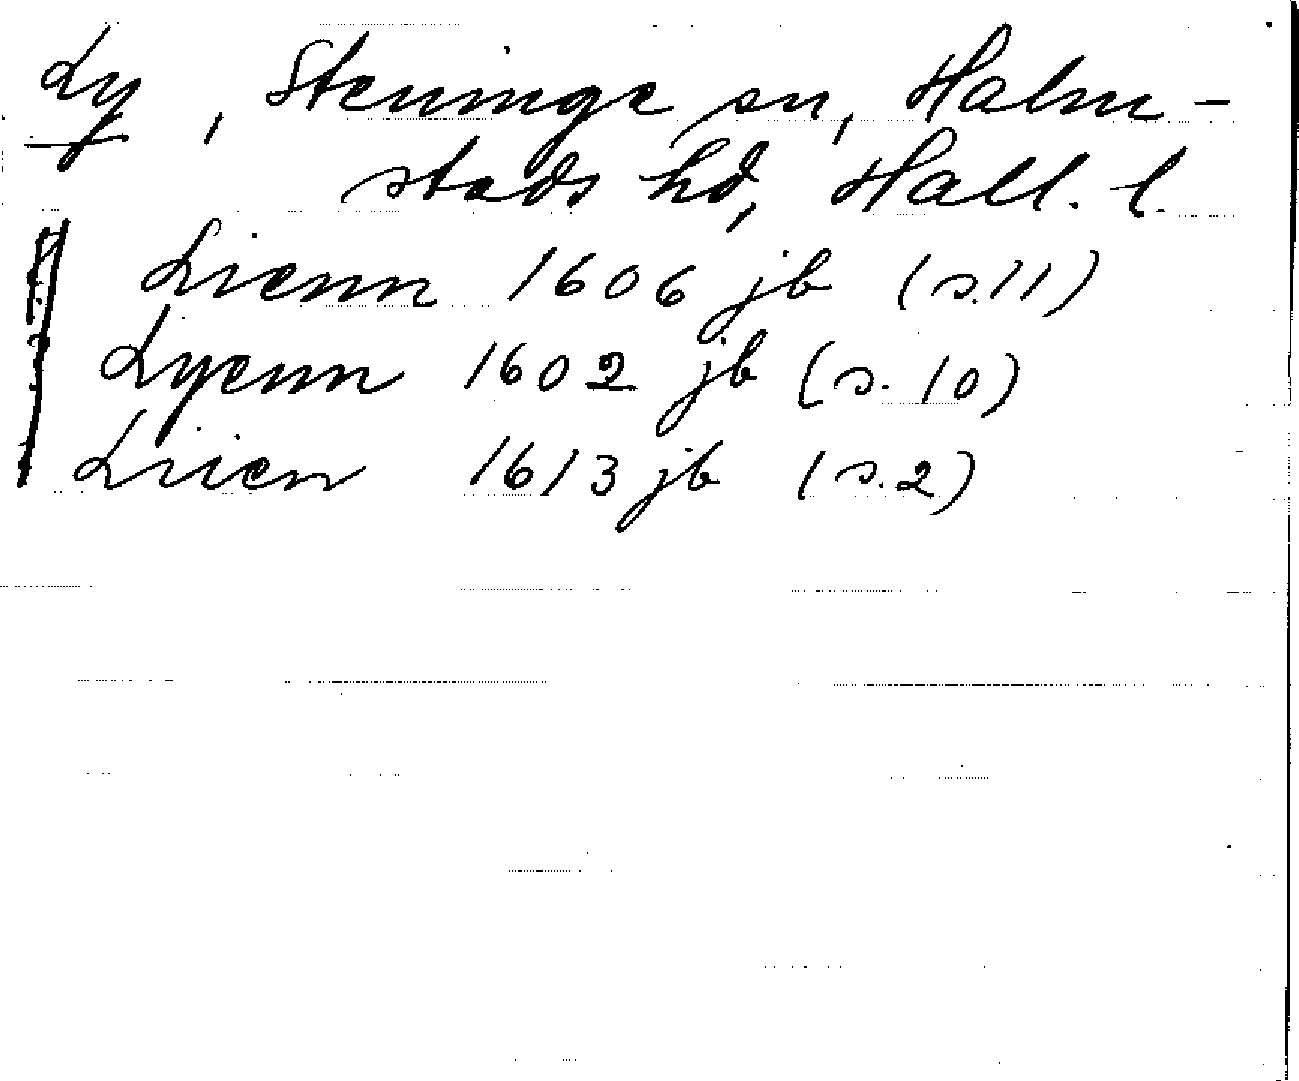 Ly, Steninge sn, Halm-
stads hd, Hall. l.
Lienn 1606 jb (s. 11)
Lyenn 1602 jb (s. 10)
Liien 1613 jb (s. 2)